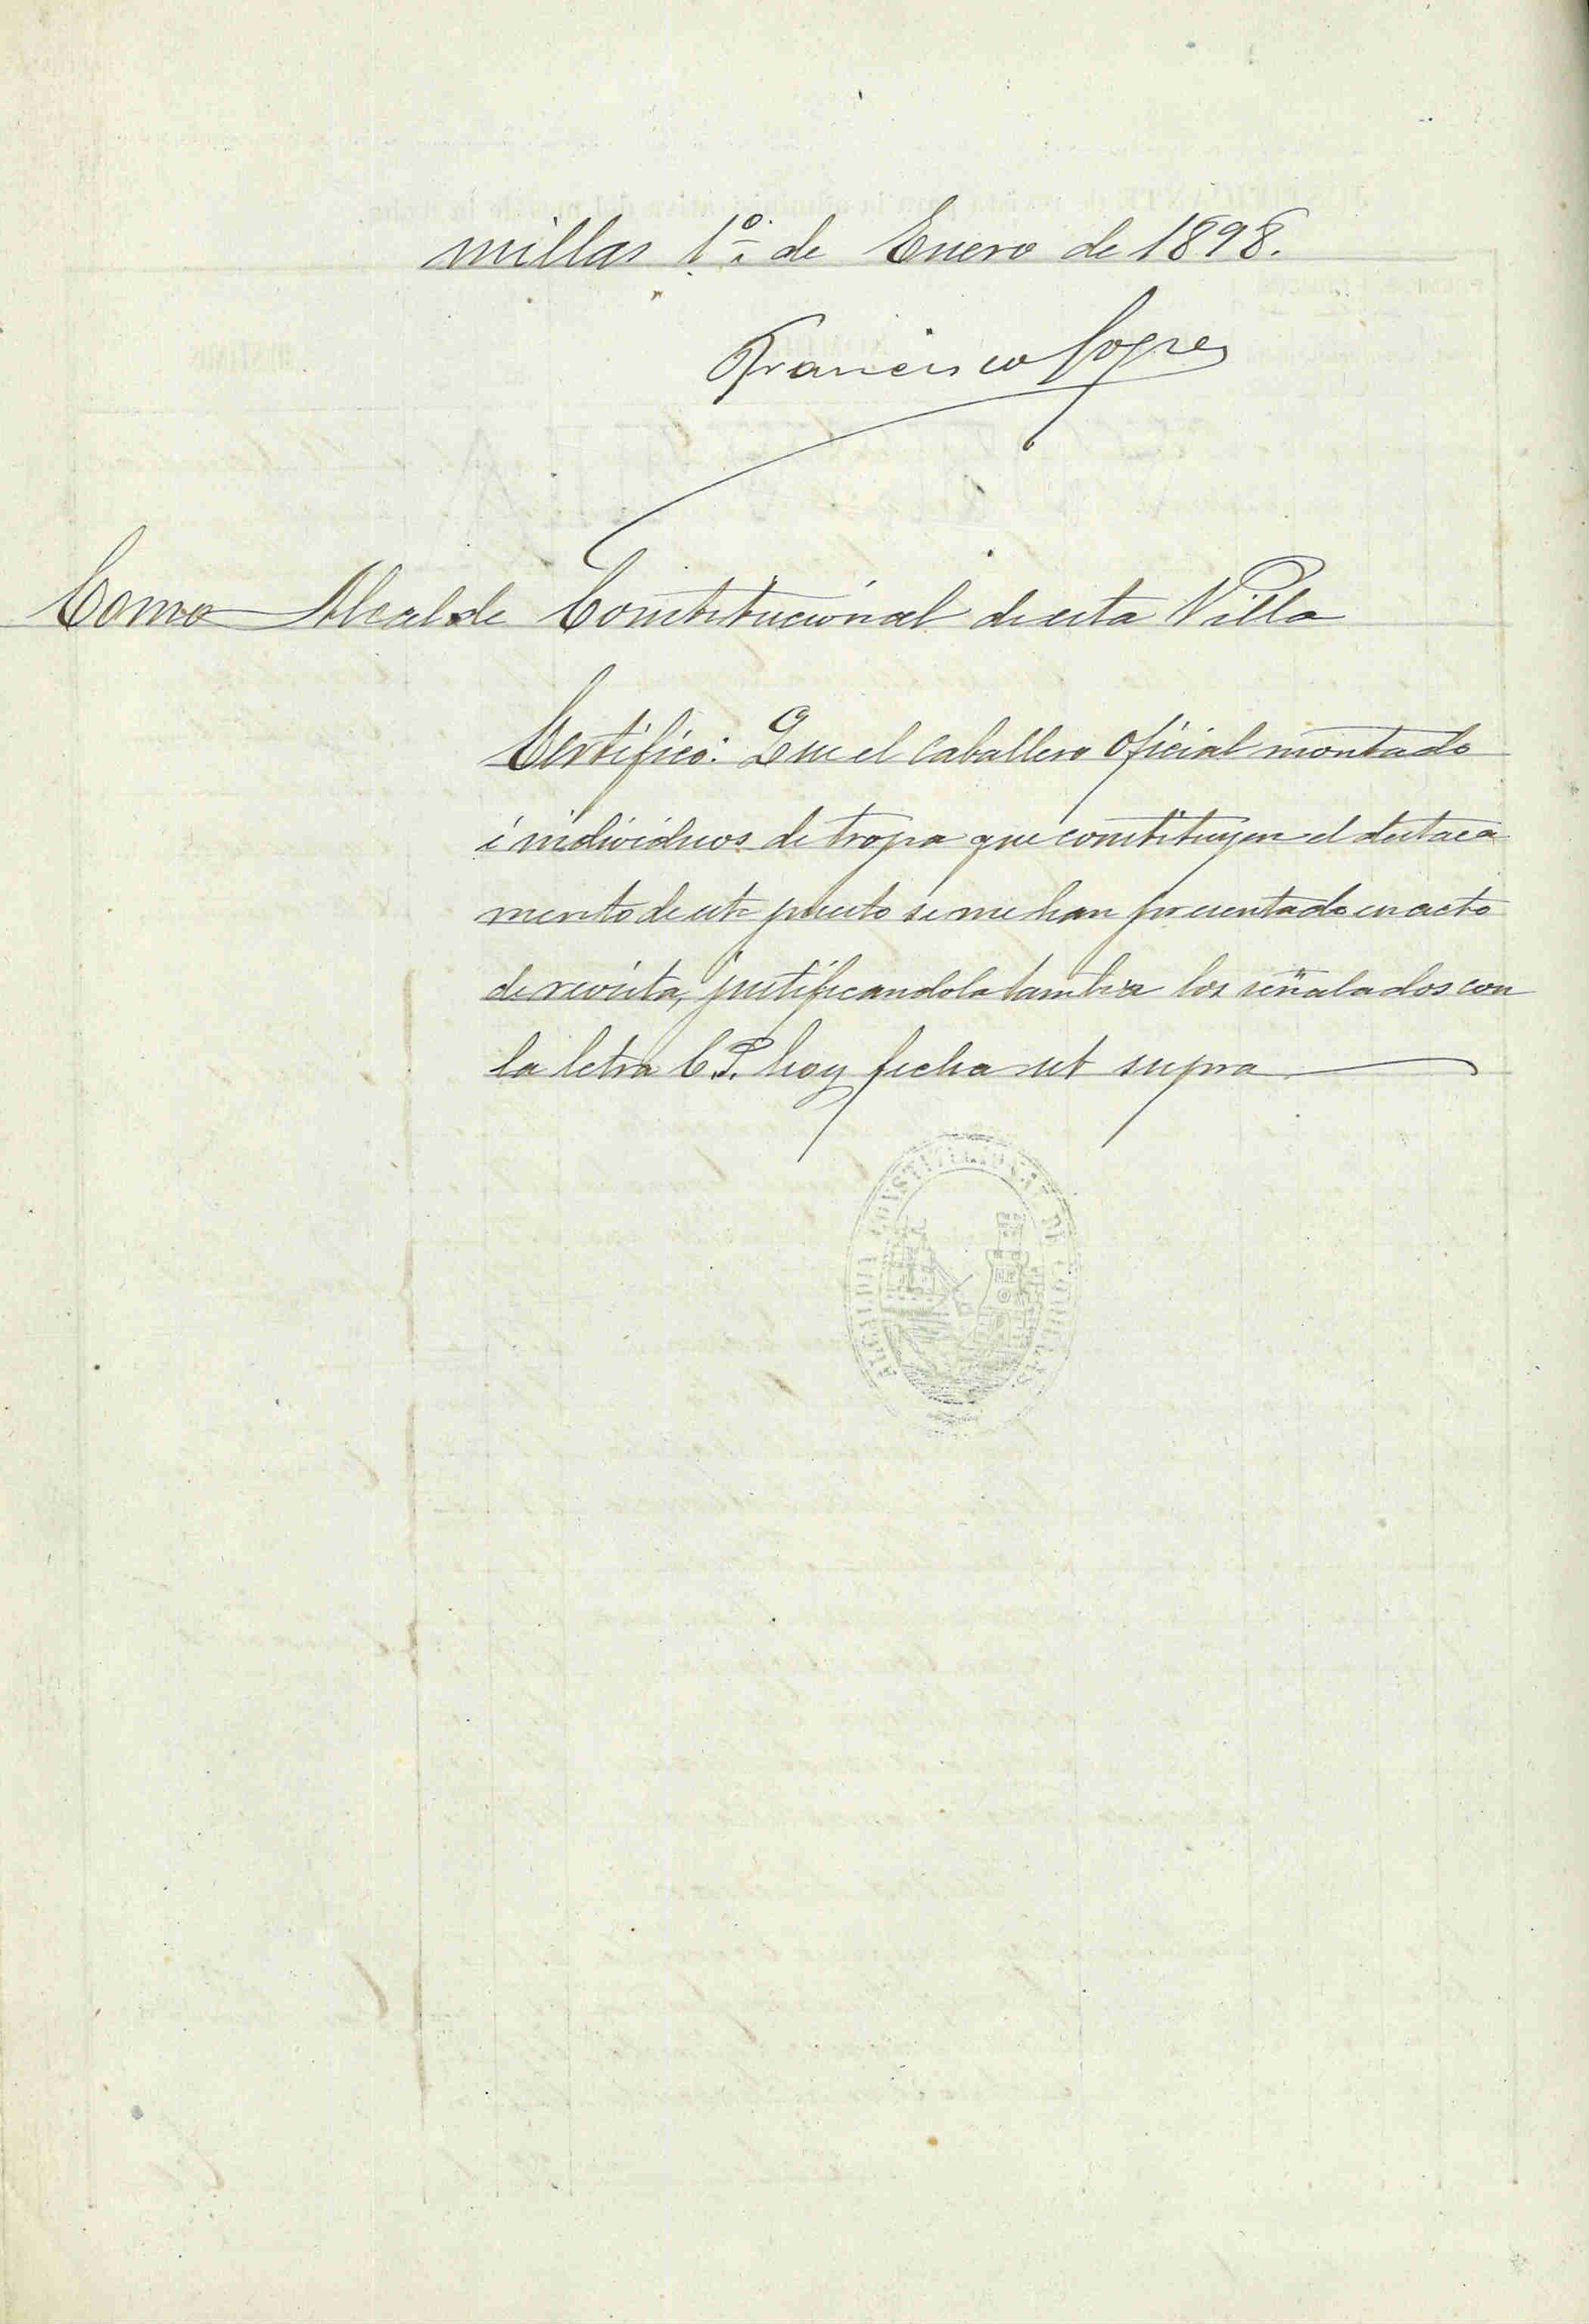 millas 1º. de Enero de 1898.
Francisco Lopez
Como Alcalde Constitucional de esta Villa
Certifico: Que el caballero oficial montado
é individuos de tropa que constituyen el destaca
mento de este puesto se me han presentado en acto
de revista, justificandola tambien los señalados con
la letra C.P. hoy fecha ut supra
ALCALDIA CONSTITUCIONAL DE